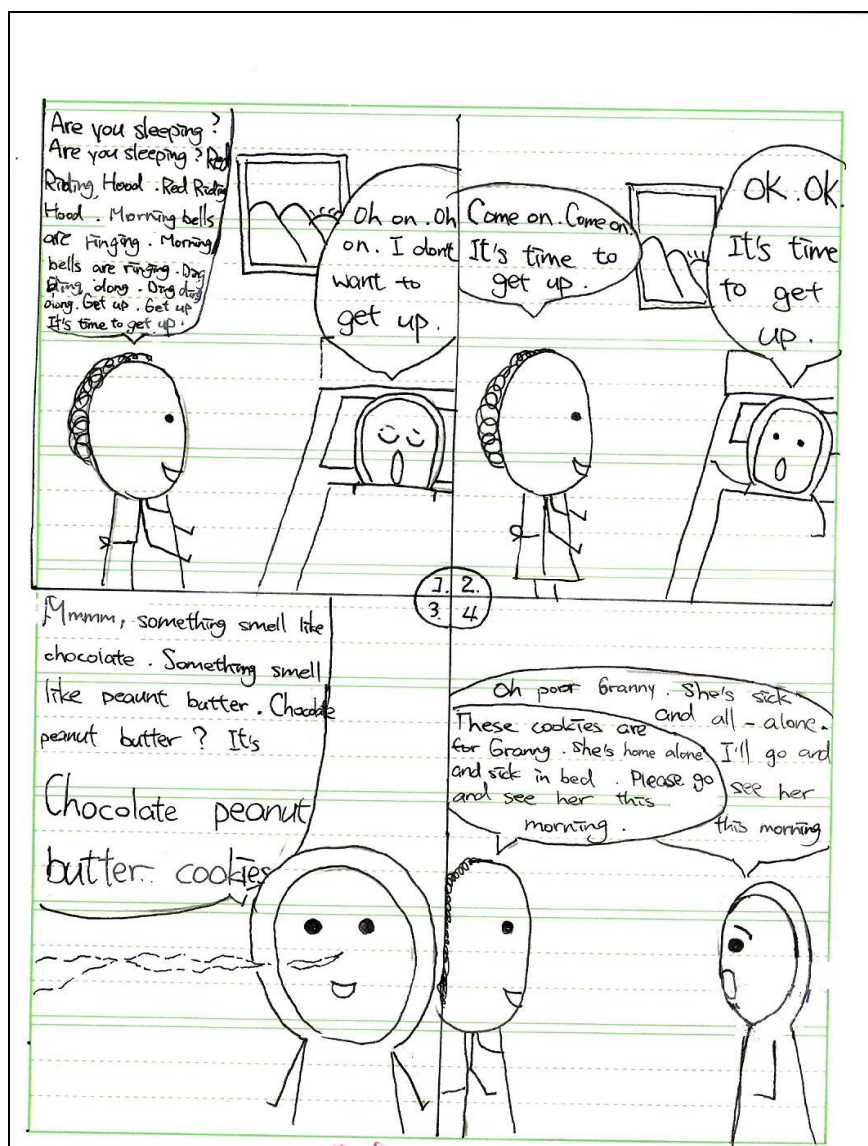 Are you sleeping?
Are you sleeping? Red
Riding Hood. Red Riding
Hood. Morning bells
are ringing. Morning
bells are ringing. Ding
ding dong. Ding ding
dong. Get up. Get up
It's time to get up.
Oh on. Oh
on. I don't
want to
get up.
Come on. Come on.
It's time to
get up.
OK. OK.
It's time
to get
up.
1. 2.
3. 4
Mmmm, something smell like
chocolate. Something smell
like peaunt butter. Chocolate
peanut butter? It's
Chocolate peanut
butter cookies
These cookies are
for Granny. She's home alone
and sick in bed. Please go
and see her this
morning.
Oh poor Granny. She's sick
and all-alone.
I'll go and
see her
this morning